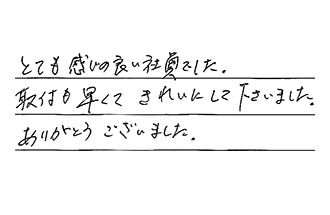 とても感じの良い社員でした。
取付も早くて きれいにして下さいました。
ありがとうございました。